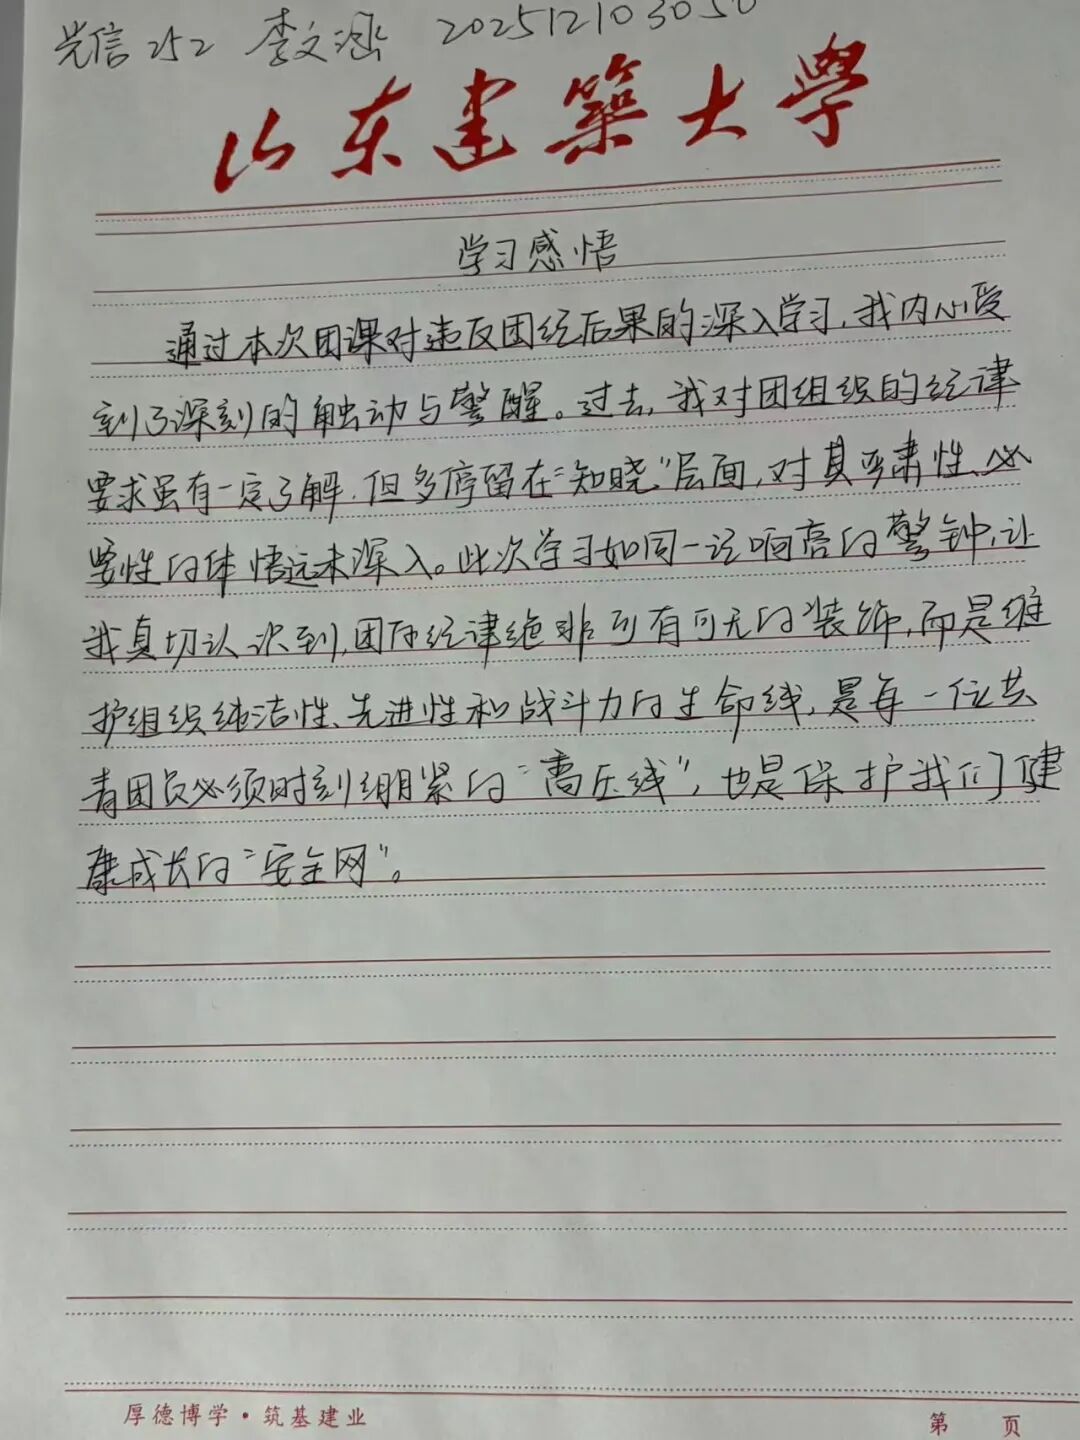 光信252 李文 202512103050
山东建築大學
学习感悟
通过本次团课对违反团纪后果的深入学习,我内心受
到了深刻的触动与警醒。过去,我对团组织的纪律
要求虽有一定了解,但多停留在“知晓”层面,对其严肃性、必
要性的体悟远未深入。此次学习如同一记响亮的警钟,让
我真切认识到,团的纪律绝非可有可无的装饰,而是维
护组织纯洁性、先进性和战斗力的生命线,是每一位共
青团员必须时刻绷紧的“高压线”,也是保护我们健
康成长的“安全网”。
厚德博学·筑基建业
第 页